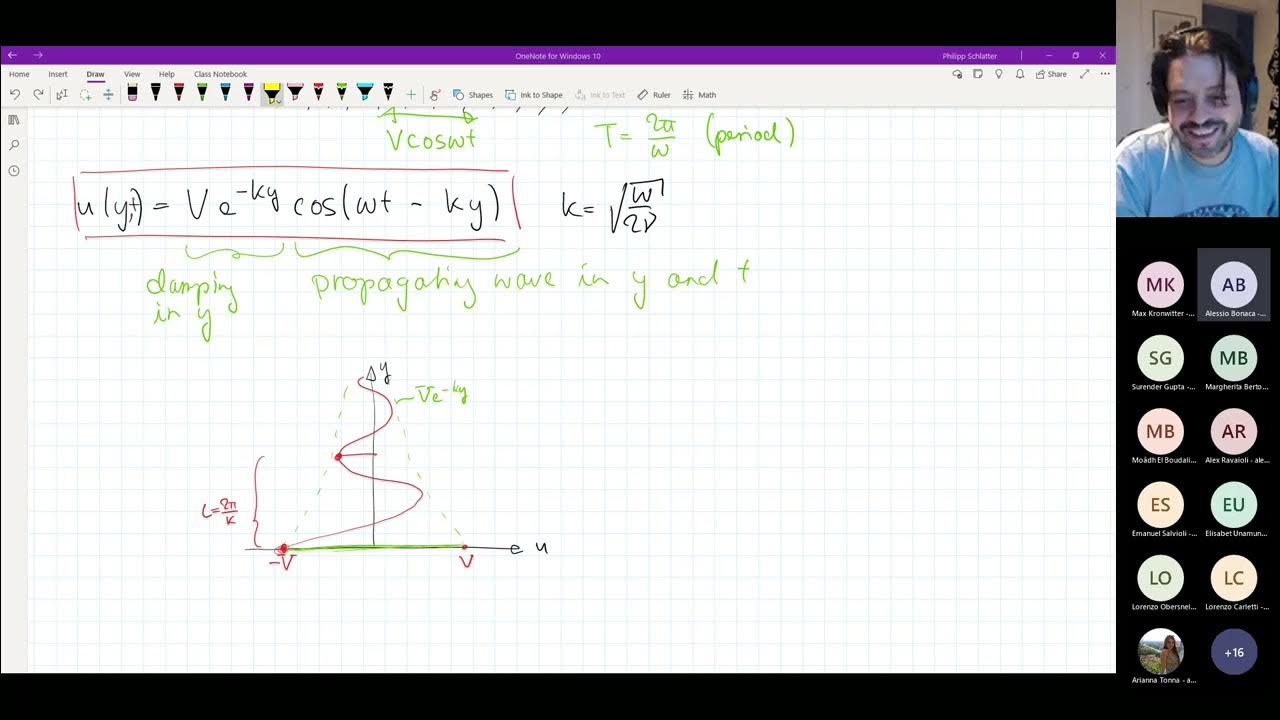 OneNote for Windows 10
Philipp Schlatter
Home Insert Draw View Help Class Notebook
Share
Shapes Ink to Shape Ink to Text Ruler Math
V cos ωt
T = 2π/ω (period)
u(y,t) = V e^-ky cos(ωt - ky)
k = √(ω/2ν)
damping in y
propagating wave in y and t
y
Ve^-ky
L = 2π/k
-V
V
u
MK
AB
Max Kronwitter -...
Alessio Bonaca -...
SG
MB
Surender Gupta -...
Margherita Berto...
MB
AR
Moâdh El Boudali...
Alex Ravaioli - ale...
ES
EU
Emanuel Salvioli -...
Elisabet Unamun...
LO
LC
Lorenzo Obersnel...
Lorenzo Carletti -...
+16
Arianna Tonna - a...